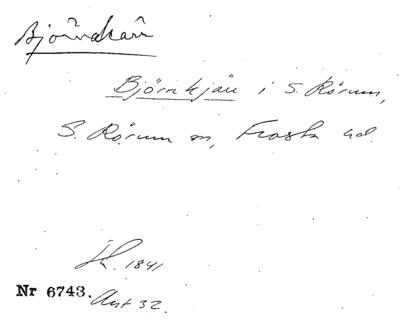 Björnkärr
Björnkjärr i S. Rörum,
S. Rörum sn, Frosta hd.
1841
Nr 6743. Ant 32.